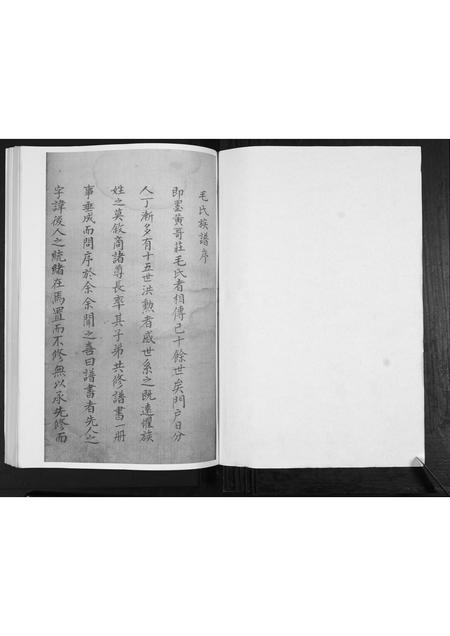 毛氏族譜序
即墨黃哥莊毛氏者相傳已十餘世矣門戶日分
人丁漸多有十五世洪勲者感世系之既遠懼族
姓之莫敘商諸尊長率其子弟共修譜書一册
事垂成而問序於余余聞之喜曰譜書者先人之
字諱後人之統緒在焉置而不修無以承先修而